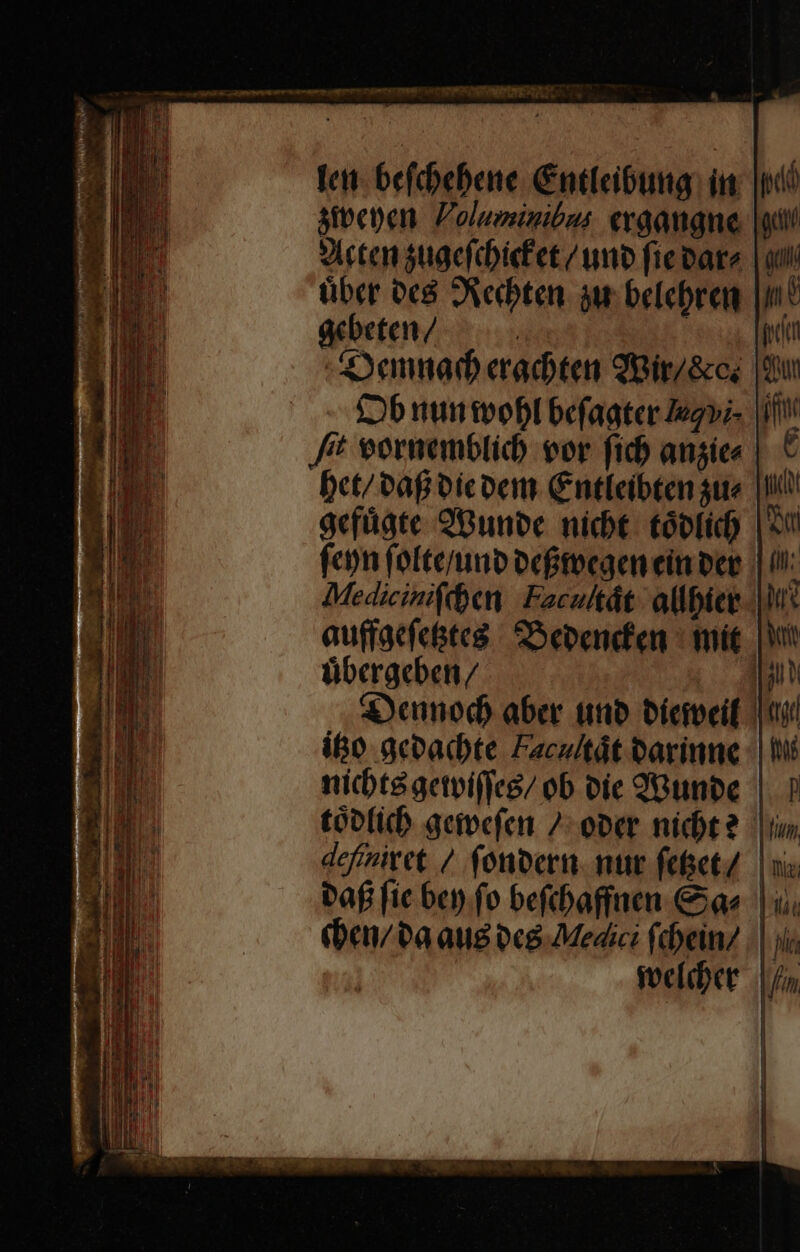 len beſchehene Entleibung in
zweyen Voluminibus ergangne
Acten zugeſchicket / und ſie dar⸗
uͤber des Rechten zu belehren
gebeten /
Demnach erachten Wir / &c.
Ob nun wohl beſagter Inqvi-
ſit vornemblich vor ſich anzie⸗
het / daß die dem Entleibten zu⸗
gefuͤgte Wunde nicht toͤdlich
ſeyn ſolte / und deßwegen ein der
Mediciniſchen Facultaͤt allhier
auffgeſetztes Bedencken mit
uͤbergeben /
Dennoch aber und dieweil
itzo gedachte Facultaͤt darinne
nichts gewiſſes / ob die Wunde
toͤdlich geweſen / oder nicht?
definiret / ſondern nur ſetzet /
daß ſie bey ſo beſchaffnen Sa⸗
chen / da aus des Medici ſchein /
welcher